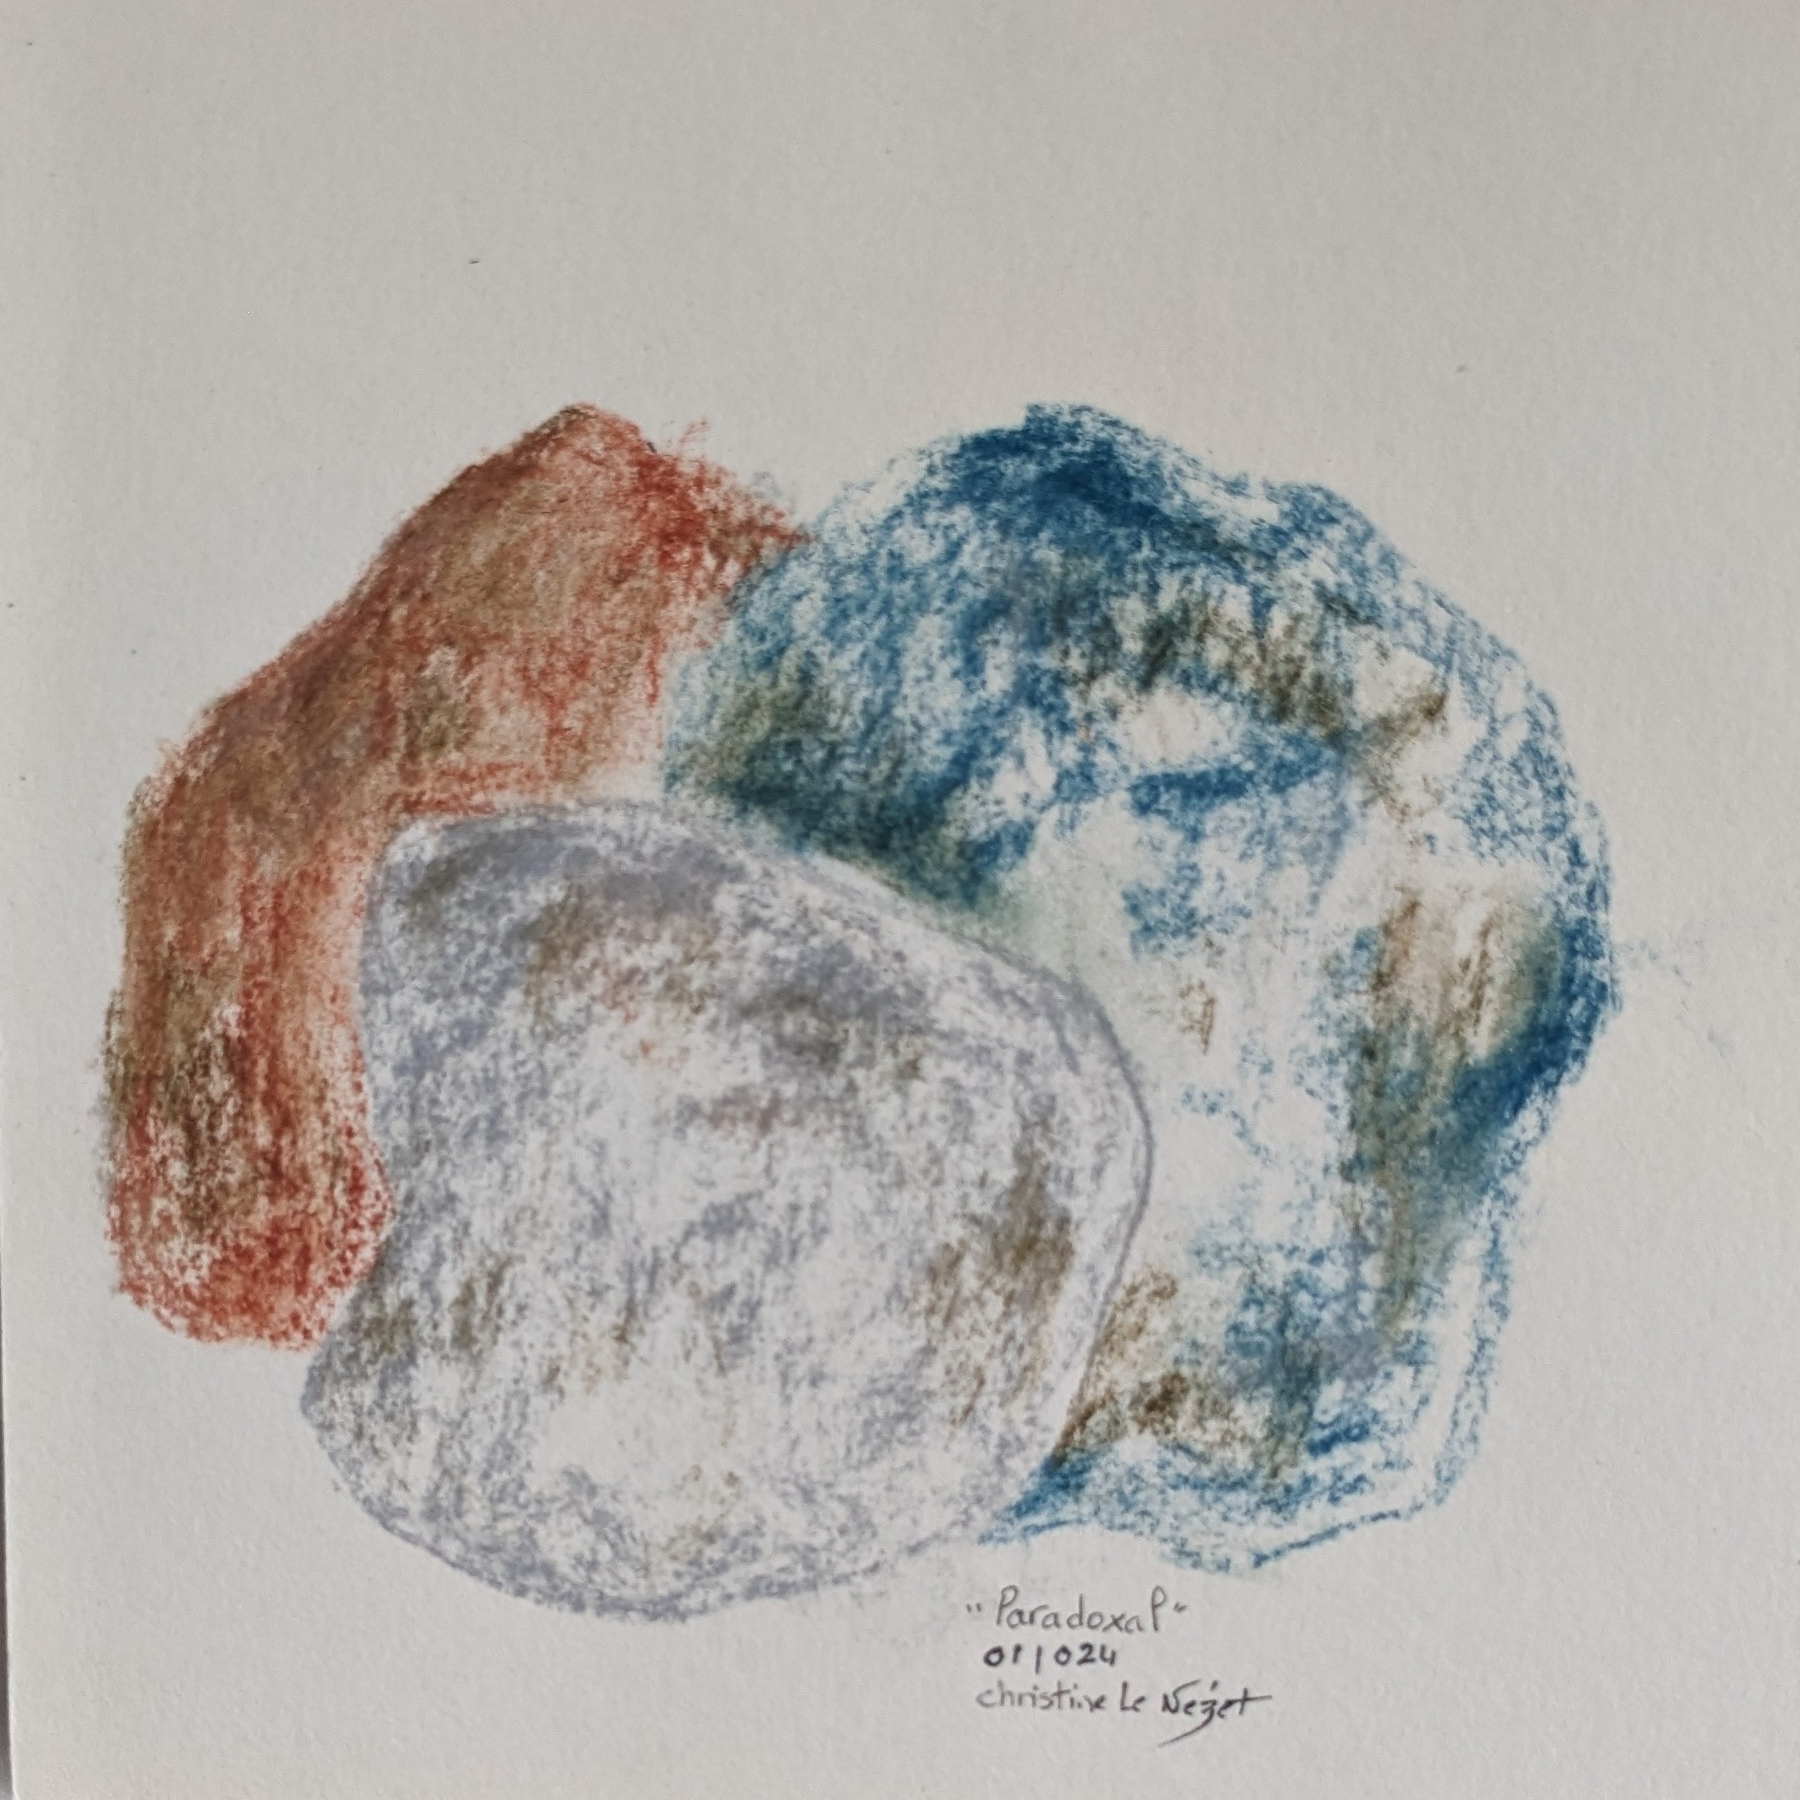 "Paradoxal"
01/024
christine Le Nézet